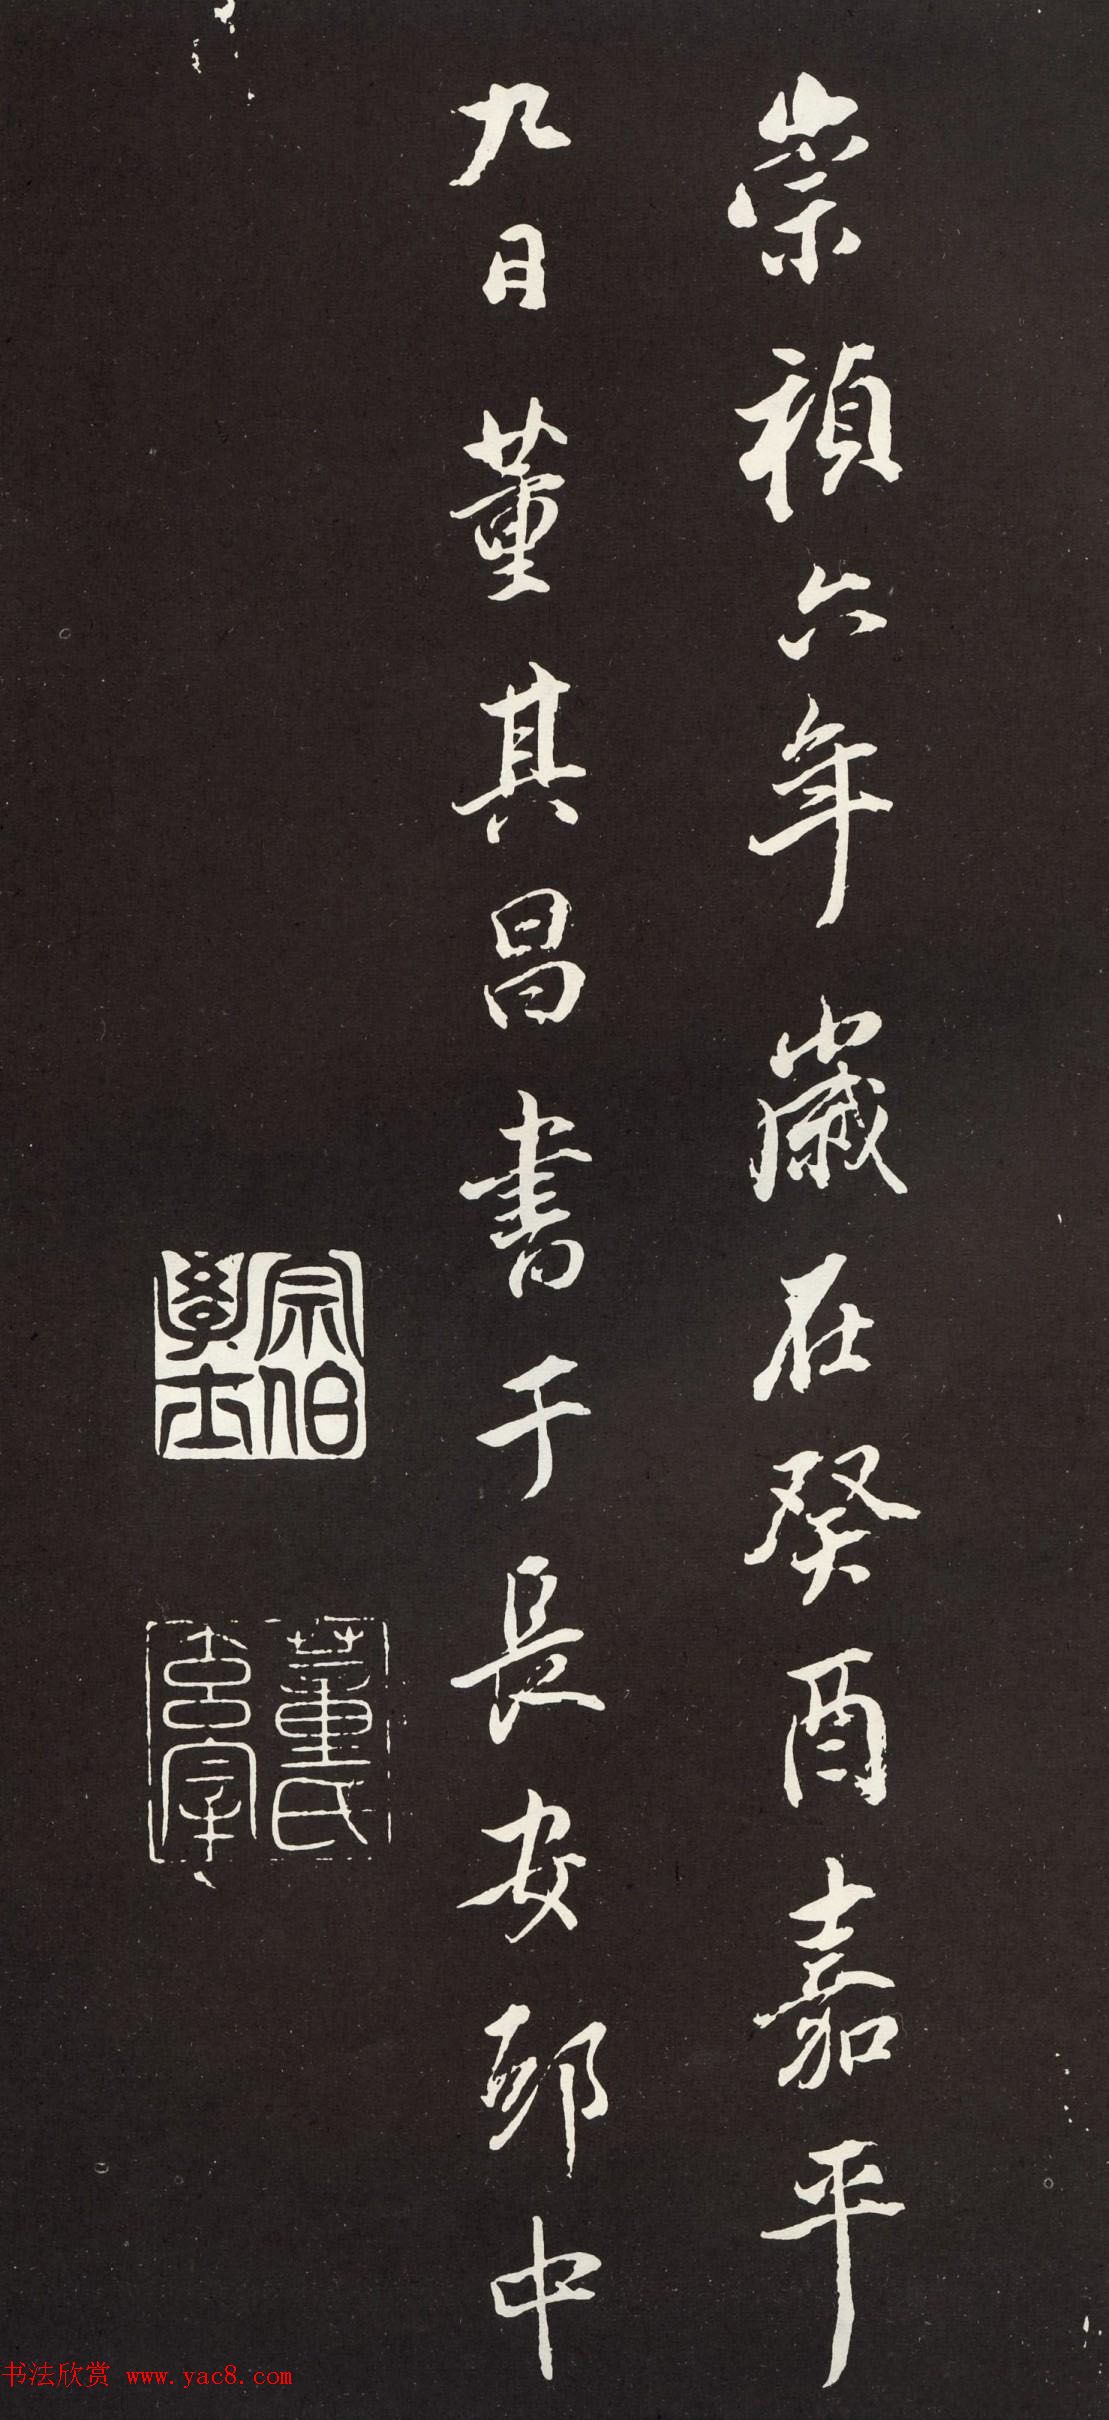 崇禎六年歲在癸酉嘉平
九日董其昌書于長安邸中
宗伯學士
董氏玄宰
书法欣赏 www.yac8.com